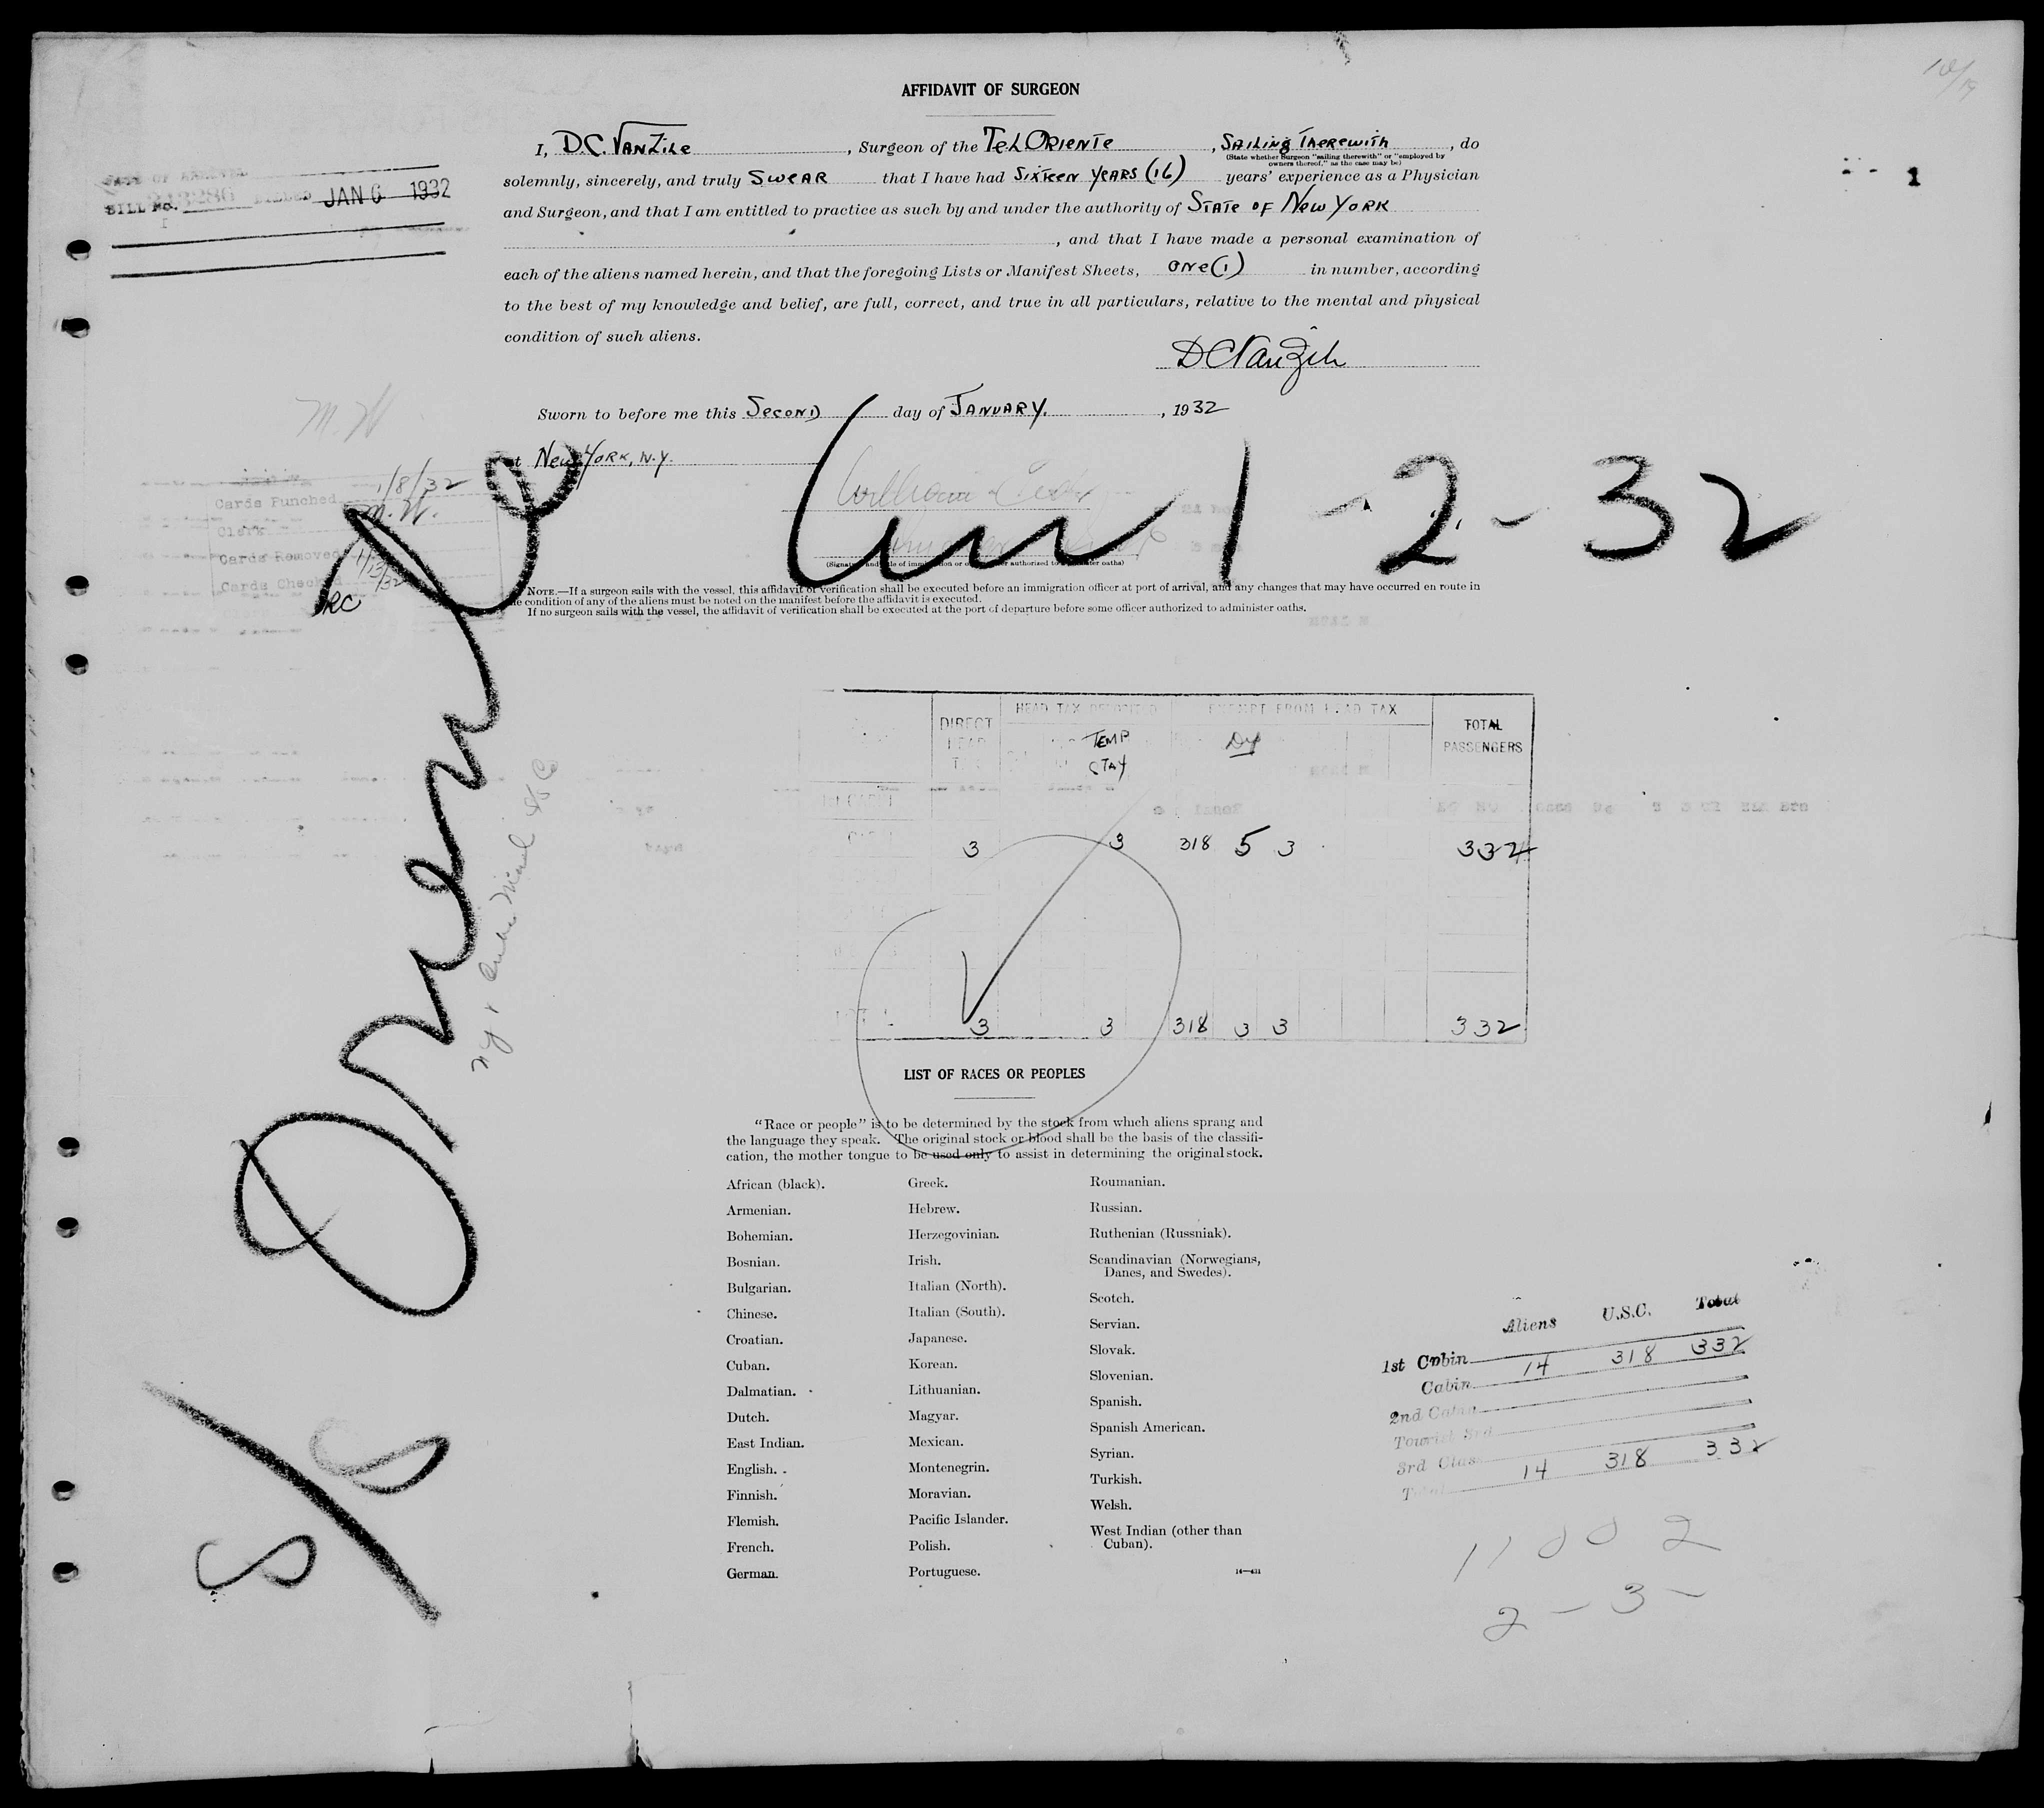 10/19
AFFIDAVIT OF SURGEON
I, D.C. VanZile, Surgeon of the TEL ORIENTE, SAILING THEREWITH, do
(State whether Surgeon "sailing therewith" or "employed by
owners thereof," as the case may be)
solemnly, sincerely, and truly SWEAR that I have had SIXTEEN YEARS (16) years' experience as a Physician
and Surgeon, and that I am entitled to practice as such by and under the authority of STATE OF NEW YORK
, and that I have made a personal examination of
each of the aliens named herein, and that the foregoing Lists or Manifest Sheets, ONE (1) in number, according
to the best of my knowledge and belief, are full, correct, and true in all particulars, relative to the mental and physical
condition of such aliens.
DCVanZile
Sworn to before me this SECOND day of JANUARY, 1932
at NEW YORK, N.Y.
BILL No. JAN 6 1932
1
M.W.
Cards Punched 1/8/32
Clerk M.W.
Cards Removed 1/13/32
Cards Checked
RC
1-2-32
(Signature and title of immigration or other officer authorized to administer oaths)
NOTE.—If a surgeon sails with the vessel, this affidavit of verification shall be executed before an immigration officer at port of arrival, and any changes that may have occurred en route in
the condition of any of the aliens must be noted on the manifest before the affidavit is executed.
If no surgeon sails with the vessel, the affidavit of verification shall be executed at the port of departure before some officer authorized to administer oaths.
S/S Oriente
NY & Cuba Mail SS Co
DIRECT HEAD TAX
HEAD TAX DEPOSITED
EXEMPT FROM HEAD TAX
TOTAL PASSENGERS
TEMP STAY
3 3 318 5 3 332
3 3 318 3 3 332
LIST OF RACES OR PEOPLES
"Race or people" is to be determined by the stock from which aliens sprang and
the language they speak. The original stock or blood shall be the basis of the classifi-
cation, the mother tongue to be used only to assist in determining the original stock.
African (black).
Armenian.
Bohemian.
Bosnian.
Bulgarian.
Chinese.
Croatian.
Cuban.
Dalmatian.
Dutch.
East Indian.
English.
Finnish.
Flemish.
French.
German.
Greek.
Hebrew.
Herzegovinian.
Irish.
Italian (North).
Italian (South).
Japanese.
Korean.
Lithuanian.
Magyar.
Mexican.
Montenegrin.
Moravian.
Pacific Islander.
Polish.
Portuguese.
Roumanian.
Russian.
Ruthenian (Russniak).
Scandinavian (Norwegians,
Danes, and Swedes).
Scotch.
Servian.
Slovak.
Slovenian.
Spanish.
Spanish American.
Syrian.
Turkish.
Welsh.
West Indian (other than
Cuban).
Aliens U.S.C. Total
1st Cabin 14 318 332
Cabin
2nd Cabin
Tourist 3rd
3rd Class
Total 14 318 332
11002
2-3-